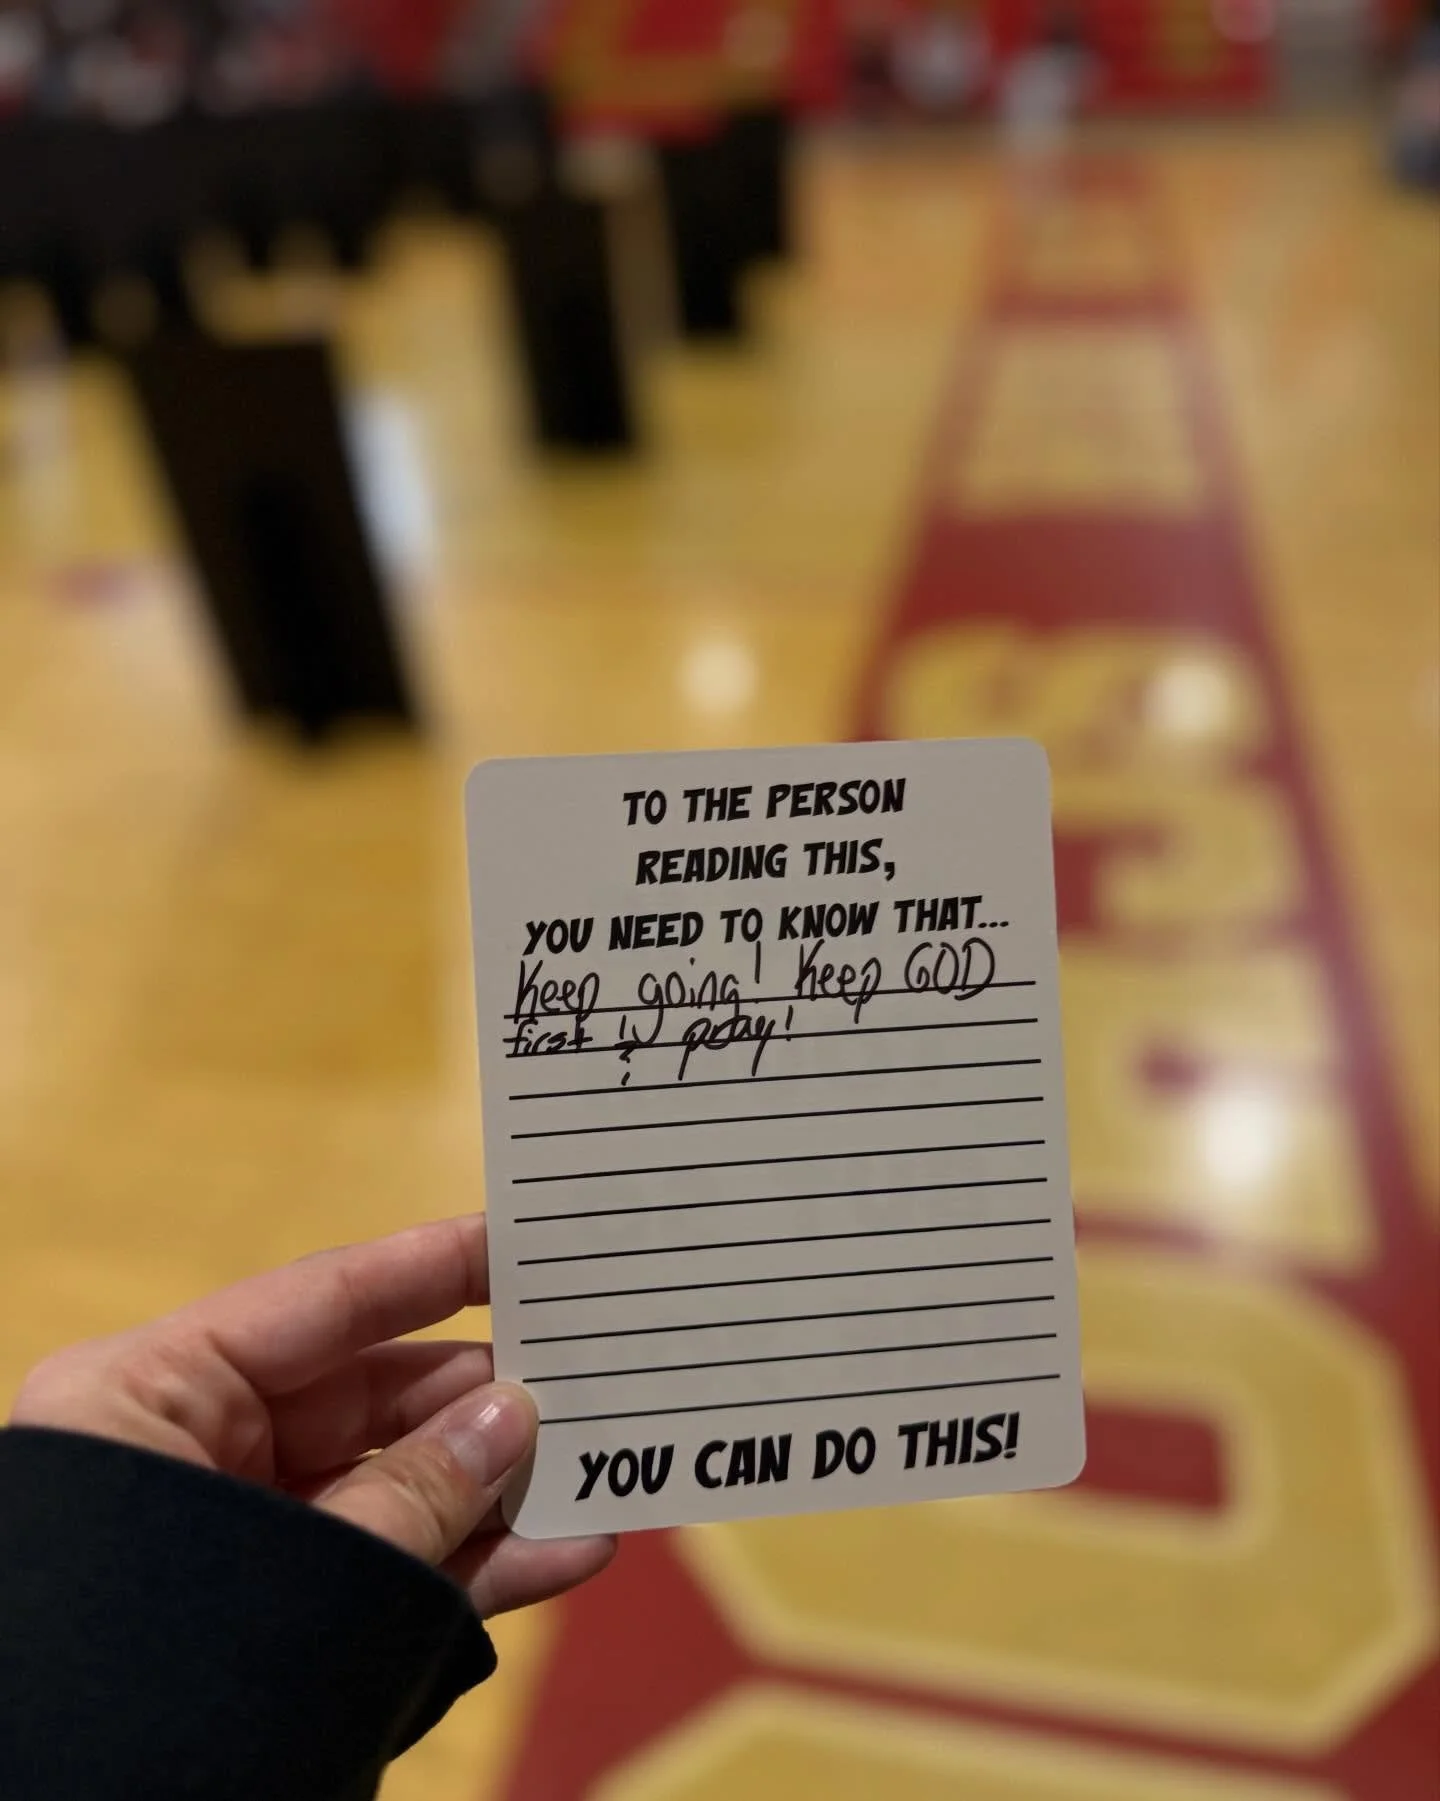 TO THE PERSON
READING THIS,
YOU NEED TO KNOW THAT...
Keep going! Keep GOD
first & pray!
YOU CAN DO THIS!